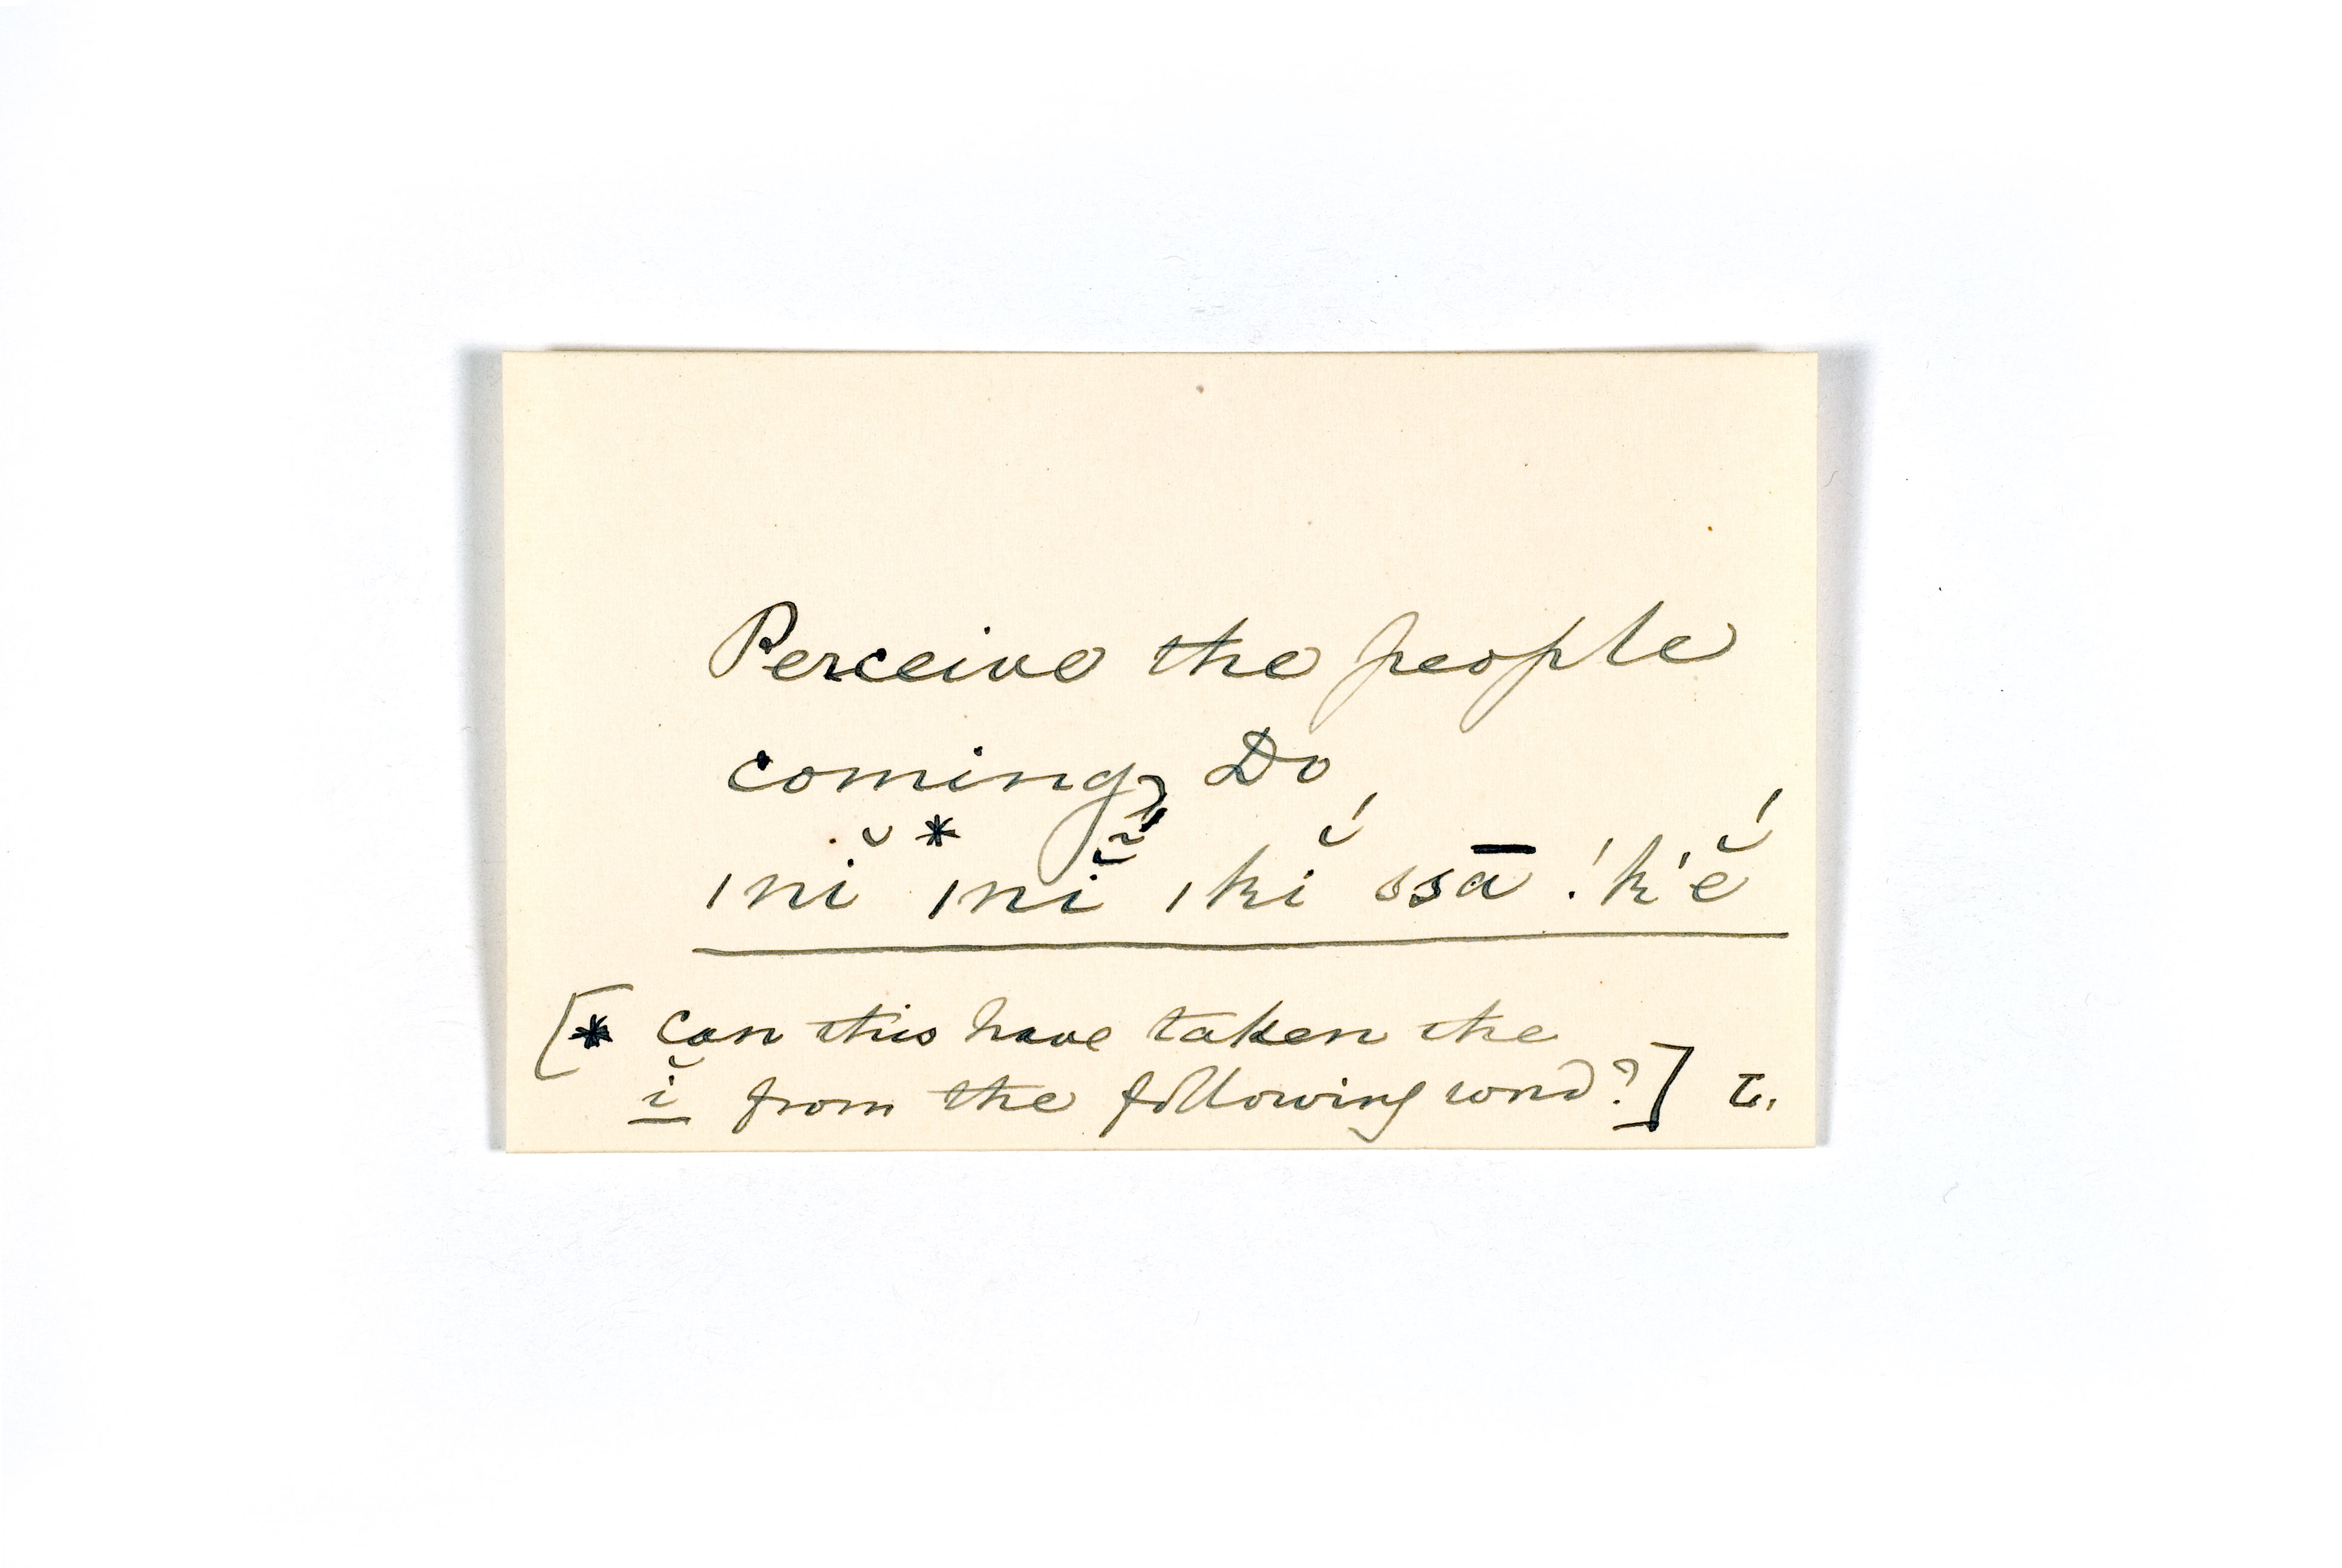 Perceive the people
coming, Do
ınĭ * ınĭ̃́ ıkĭ́ ssā !k'ĕ́
[* can this have taken the
ĭ from the following word?] T.